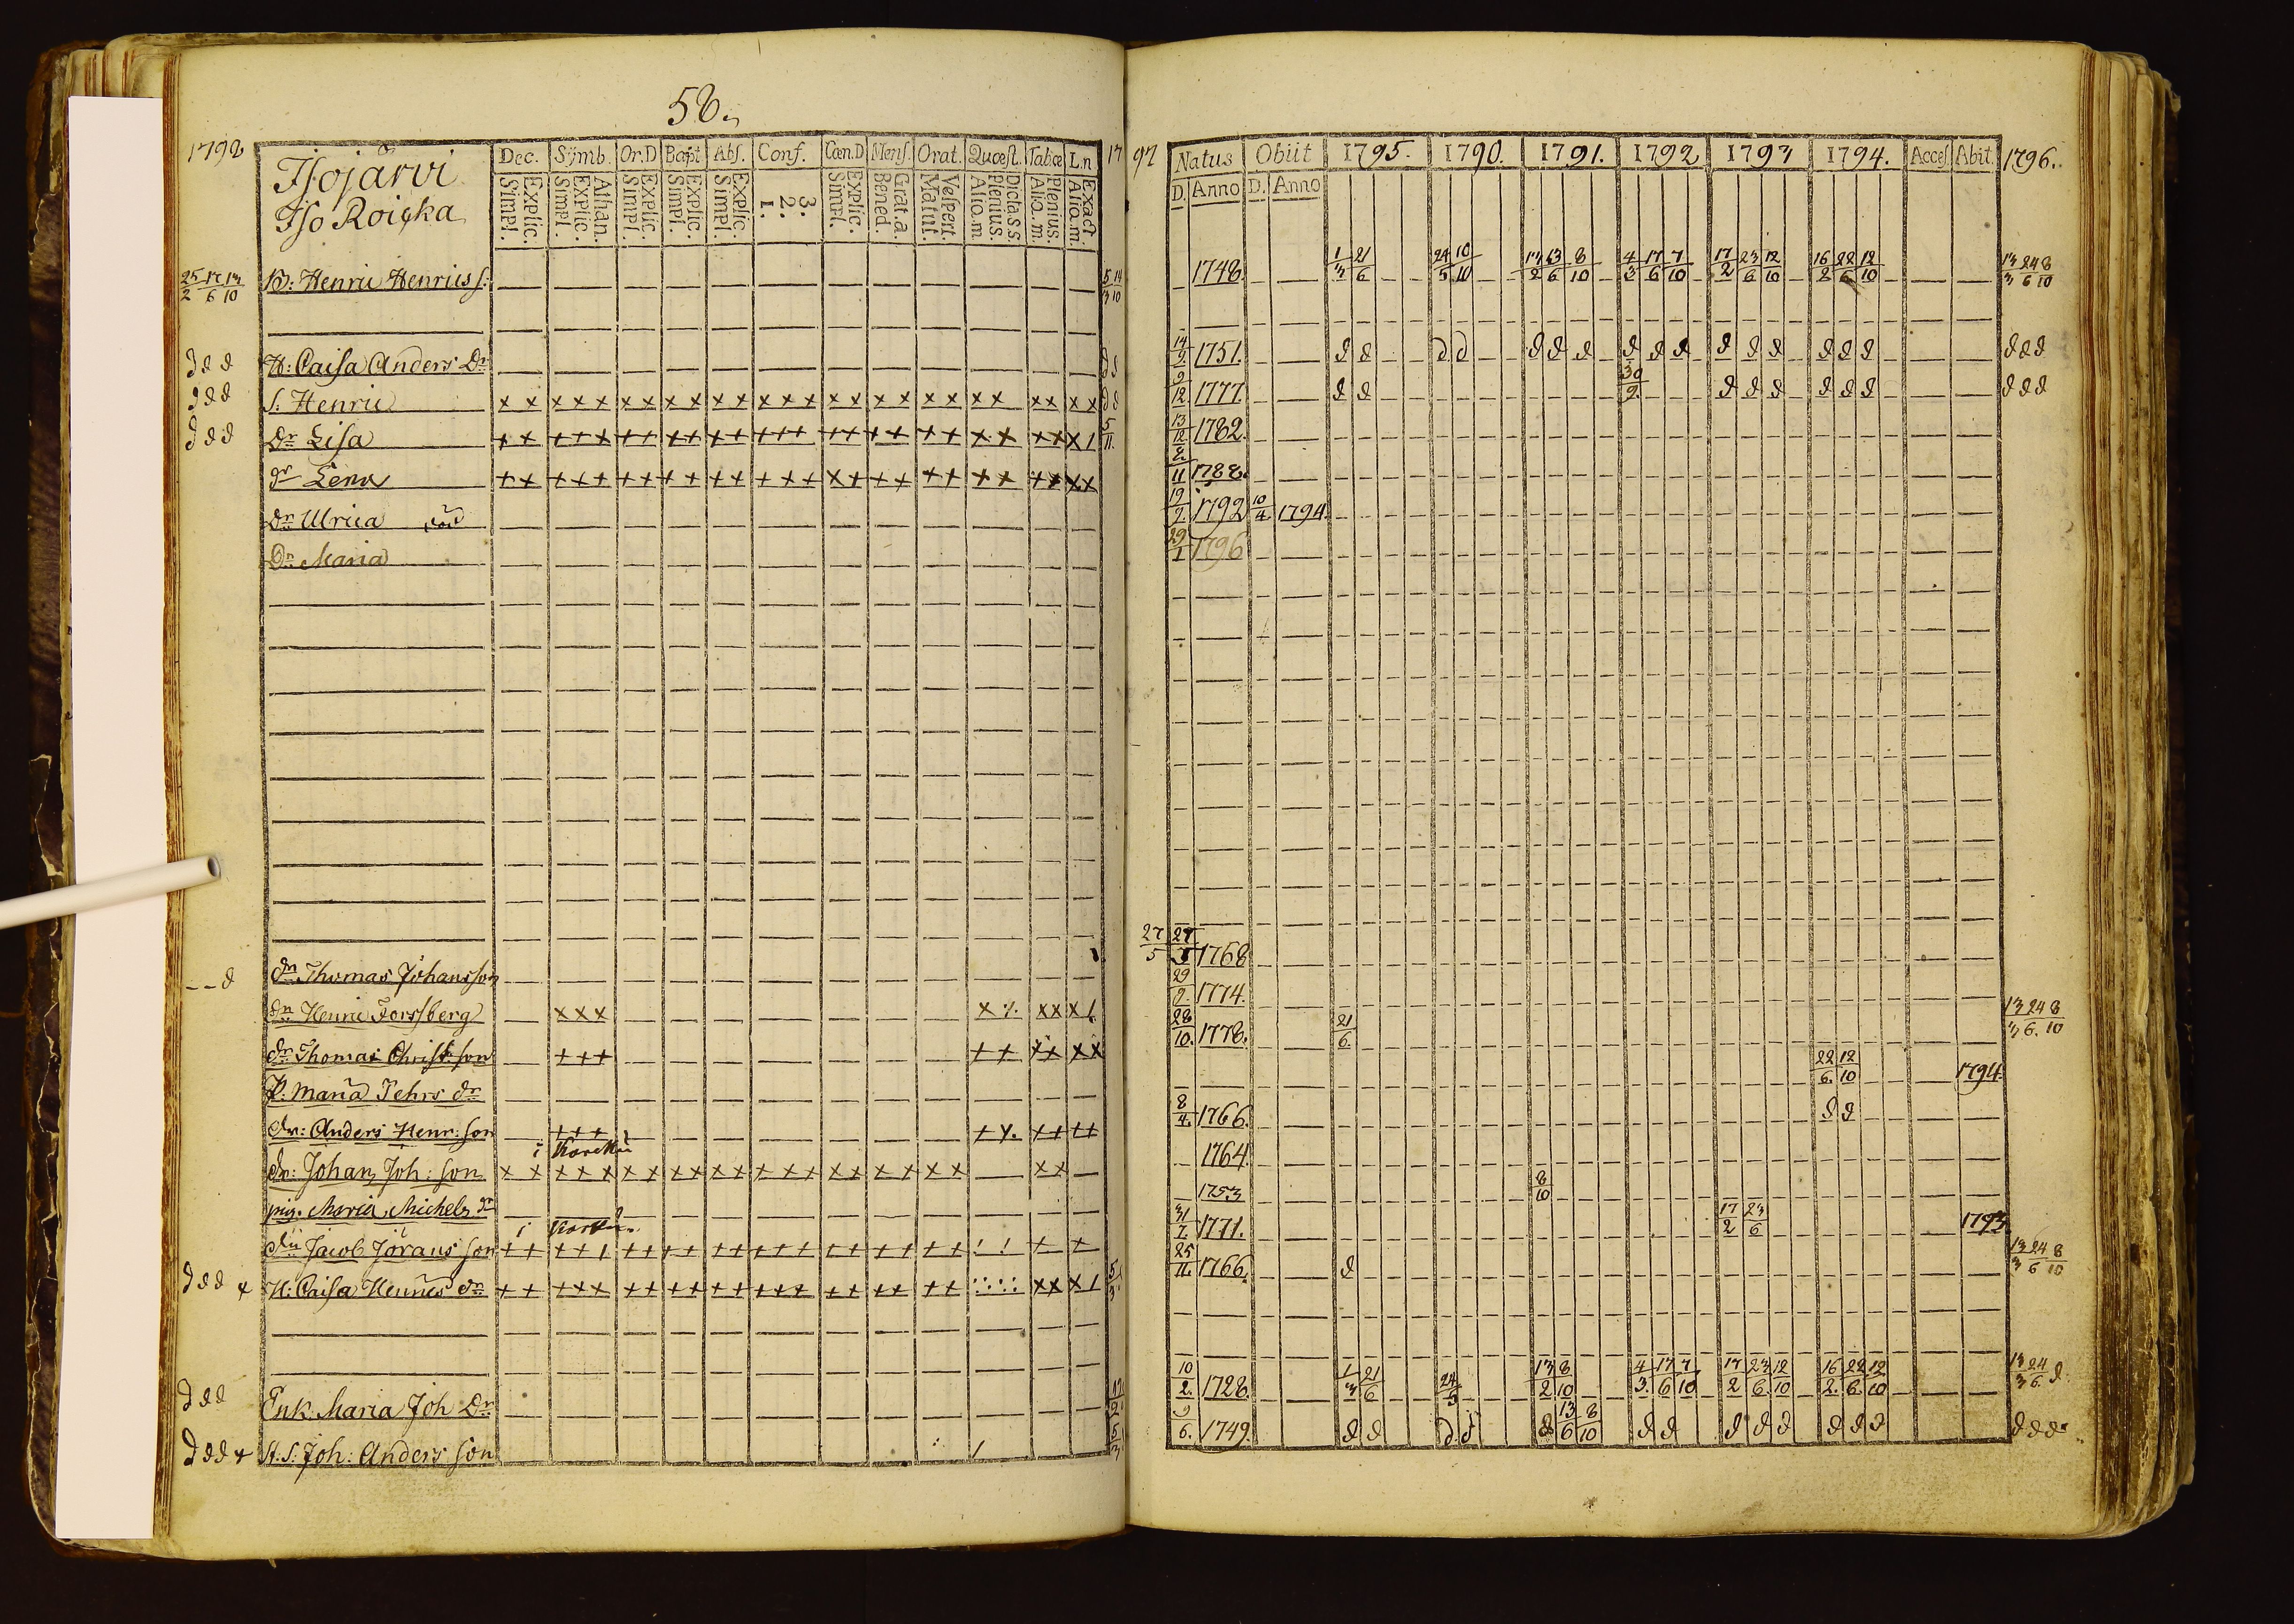 58.
1798
Isojärvi
Iso Roiska
Dec. Symb. Or.D Bapt Abs. Conf. Cœn.D Mens. Orat. Quæst. Tabœ L.n
Simpl. Explic. Simpl. Explic. Athan. Simpl. Explic. Simpl. Explic. Simpl. Explic. 1. 2. 3. Simpl. Explic. Bened. Grat.a. Matut. Vespert. Alio.m Plenius. Dicta.s.s Alio.m. Plenius. Alio.m. Exact.
1797
25/2 17/6 13/10 B: Henric Henrics s: 5/3 14/10
d d d H: Caisa Anders Dr d d
d d d S. Henric x x x x x x x x x x x x x x x x x x x x x x x x x x d d
d d d Dr Lisa + + + + x + + + + + + + + + + + + + + + x x + x x 1 5/11
Dr Lena + + + + + + + + + + + + + + x + + + + + + + + x x x
Dr Ulrica död
Dr Maria
- - d dr Thomas Johansson
dr Henric Forssberg x x x x ·/. x x x 1
dr Thomas Christ.son + + + + + x x x x
P. Maria Pehrs dr
dr: Anders Henr: son + + + + ·/. + + + +
dr: Johan Joh: son x x x x x x x x x x x x x x x x x x x x x x
pig. Maria Michels dr
dr Jacob Jörans son + + + + 1 + + + + + + + + + + + + + + + + ! ! + +
d d d + H: Caisa Henrics dr + + + x x + + + + + + + + + + + + + + + + x x x 1 5/3
d d d Enk. Maria Joh Dr
d d d + H.S: Joh: Anders son 5/3
Natus Obiit 1795. 1790. 1791. 1792 1793 1794. Acces. Abit. 1796.
D. Anno D. Anno
1748. 1/3 21/6 24/5 10/10 13/2 13/6 8/10 4/3 17/6 7/10 17/2 23/6 12/10 16/2 22/6 12/10 13/3 24/6 8/10
14/2 1751. d d d d d d d d d d d d d d d d d d d
9/12 1777. d d 30/9. d d d d d d d d d
13/12 1782.
2/11 1788.
19/2. 1792 10/4 1794.
29/1 1796
27/5 27/5 1768
29/9. 1774.
28/10. 1778. 21/6. 13/3 24/6. 8/10
22/6. 12/10 1794.
8/4. 1766. d d
1764.
1753 8/10
31/7. 1771. 17/2 23/6 1793.
25/11. 1766. d 13/3 24/6 8/10
10/2. 1728. 1/3 21/6 24/5 13/2 8/10 4/3. 17/6 7/10 17/2 23/6. 12/10 16/2. 22/6. 12/10 13/3 24/6. d
9/6. 1749. d d d d d 13/6 8/10 d d d d d d d d d d d